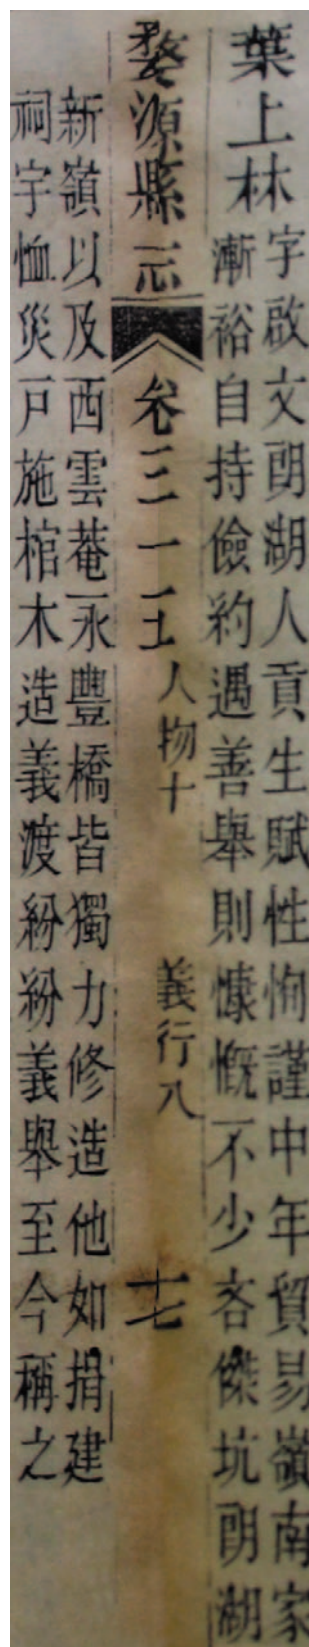 葉上林
字啟文朗湖人貢生賦性恂謹中年貿易嶺南家
漸裕自持儉約遇善舉則慷慨不少吝傑坑朗湖
婺源縣志
卷三十五
人物十 義行八
十七
新嶺以及西雲菴永豐橋皆獨力修造他如捐建
祠宇恤災戶施棺木造義渡紛紛義舉至今稱之